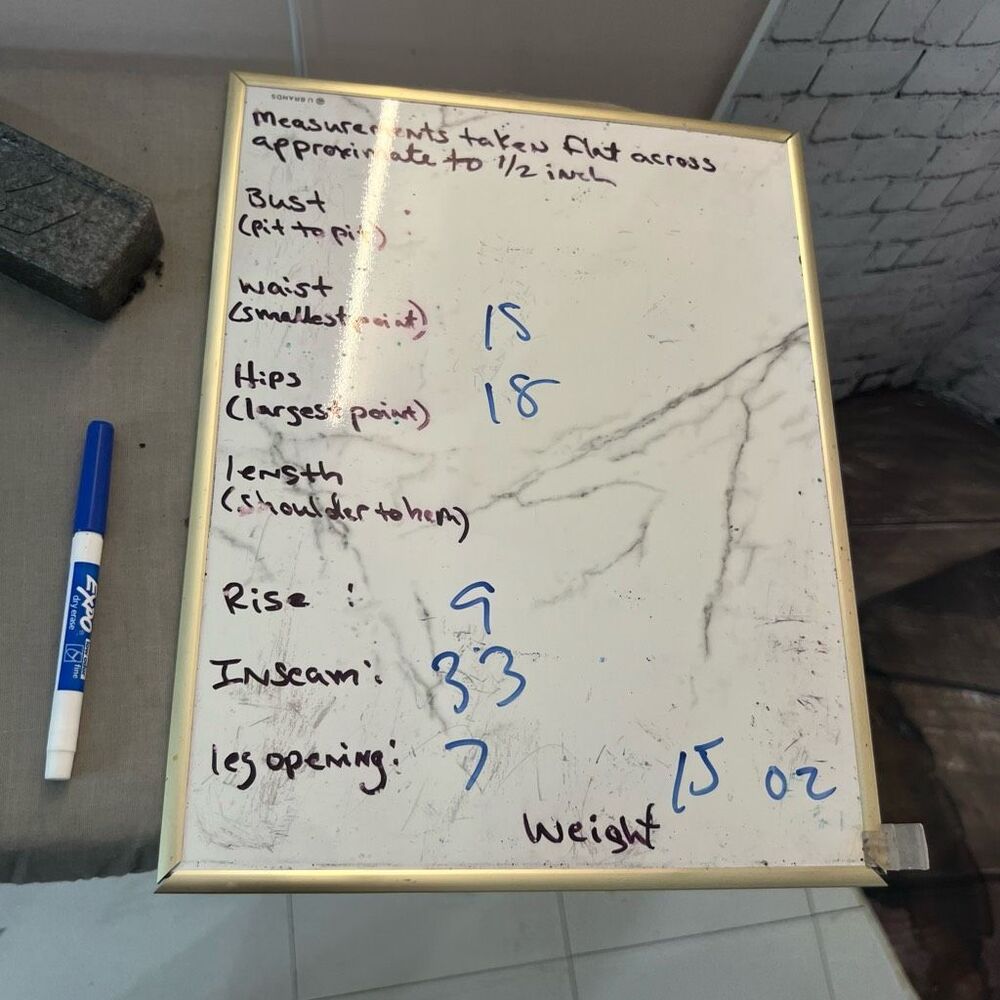 U BRANDS
Measurements taken flat across
approximate to 1/2 inch
Bust
(pit to pit)
waist
(smallest point) 15
Hips
(largest point) 18
length
(shoulder to hem)
Rise : 9
Inseam: 33
leg opening: 7
15 oz
Weight
EXPO
dry erase
fine